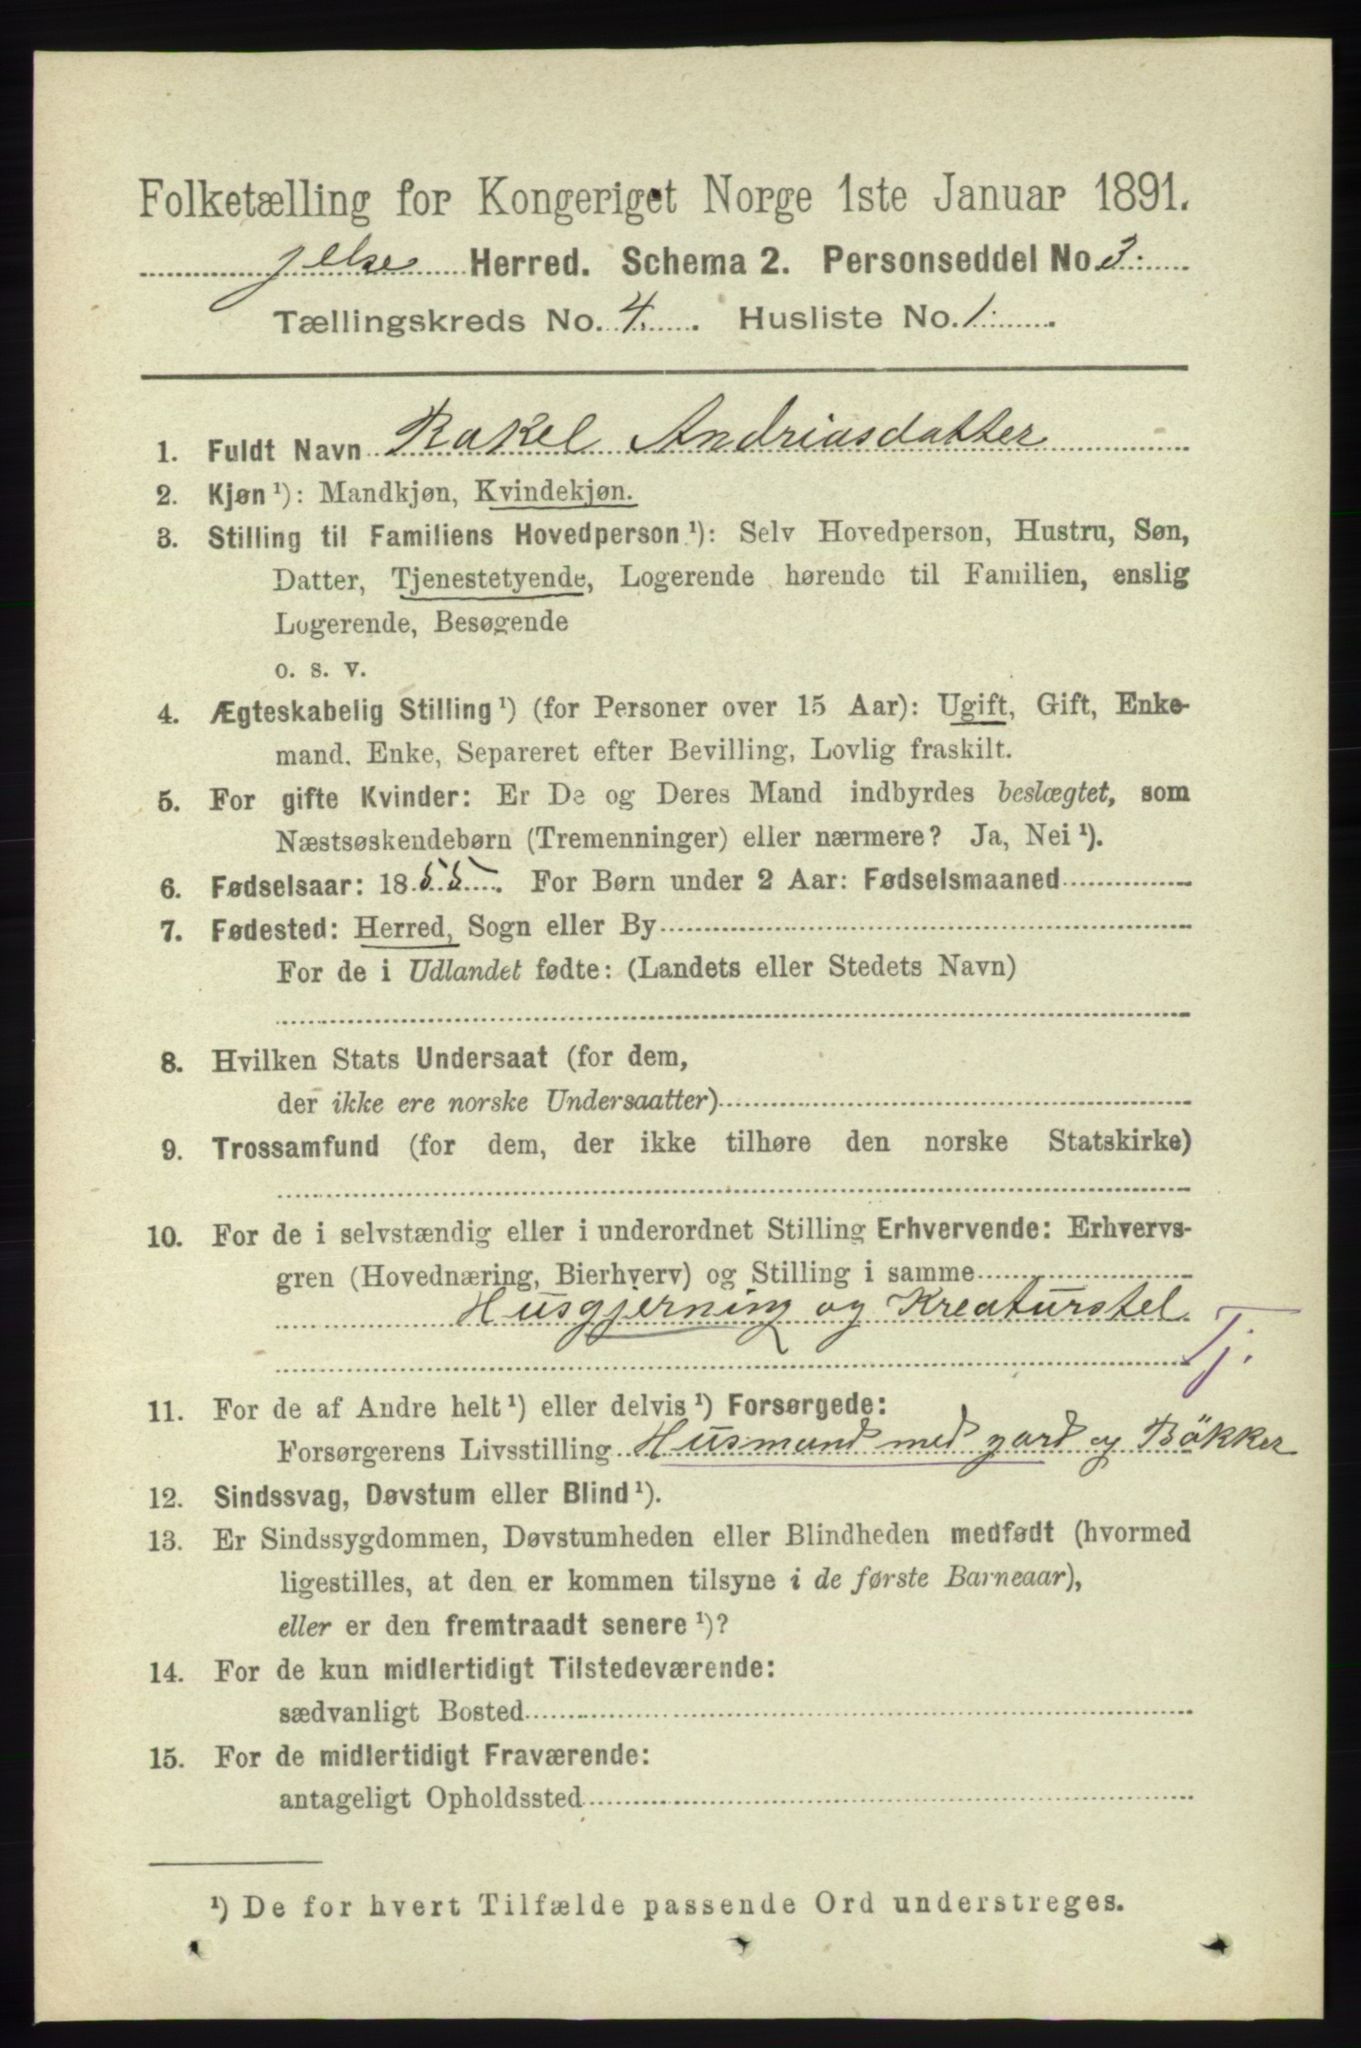 Folketælling for Kongeriget Norge 1ste Januar 1891.
Jelse Herred. Schema 2. Personseddel No 3.
Tællingskreds No. 4. Husliste No. 1.
1. Fuldt Navn Rakel Andriasdatter
2. Kjøn¹): Mandkjøn, Kvindekjøn.
3. Stilling til Familiens Hovedperson¹): Selv Hovedperson, Hustru, Søn,
Datter, Tjenestetyende, Logerende hørende til Familien, enslig
Logerende, Besøgende
o. s. v.
4. Ægteskabelig Stilling¹) (for Personer over 15 Aar): Ugift, Gift, Enke-
mand, Enke, Separeret efter Bevilling, Lovlig fraskilt.
5. For gifte Kvinder: Er De og Deres Mand indbyrdes beslægtet, som
Næstsøskendebørn (Tremenninger) eller nærmere? Ja, Nei¹).
6. Fødselsaar: 1855. For Børn under 2 Aar: Fødselsmaaned
7. Fødested: Herred, Sogn eller By
For de i Udlandet fødte: (Landets eller Stedets Navn)
8. Hvilken Stats Undersaat (for dem,
der ikke ere norske Undersaatter)
9. Trossamfund (for dem, der ikke tilhøre den norske Statskirke)
10. For de i selvstændig eller i underordnet Stilling Erhvervende: Erhvervs-
gren (Hovednæring, Bierhverv) og Stilling i samme
Husgjerning og Kreaturstel
Tj.
11. For de af Andre helt¹) eller delvis¹) Forsørgede:
Forsørgerens Livsstilling Husmand med jord og Bökker
12. Sindssvag, Døvstum eller Blind¹).
13. Er Sindssygdommen, Døvstumheden eller Blindheden medfødt (hvormed
ligestilles, at den er kommen tilsyne i de første Barneaar),
eller er den fremtraadt senere¹)?
14. For de kun midlertidigt Tilstedeværende:
sædvanligt Bosted
15. For de midlertidigt Fraværende:
antageligt Opholdssted
¹) De for hvert Tilfælde passende Ord understreges.